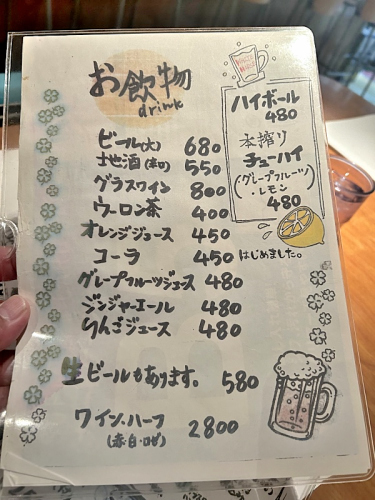 お飲物
drink
ビール(大) 680
地酒(辛口) 550
グラスワイン 800
ウーロン茶 400
オレンジジュース 450
コーラ 450
グレープフルーツジュース 480
ジンジャーエール 480
りんごジュース 480
生ビールもあります。 580
ワイン・ハーフ 2800
(赤・白・ロゼ)
ハイボール
480
本搾り
チューハイ
(グレープフルーツ)
・レモン
480
はじめました。